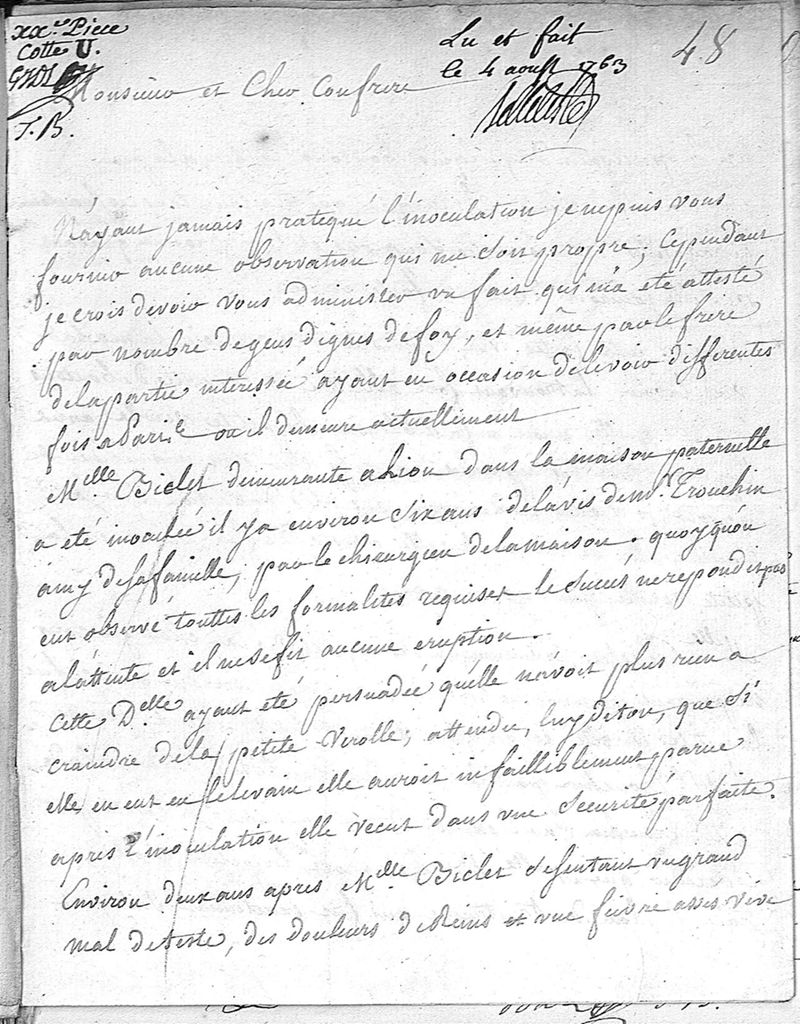 xxe Piece
Cotte U.
J. B.
Lu et fait
le 4 aoust 1763
48
Monsieur et Cher Confrere
N'ayant jamais pratequé l'inoculation je nepuis vous
fournir aucune observation qui me soit propre; Cependant
je crois devoir vous administrer un fait qui m'a été attesté
par nombre de gens dignes de foy, et même par le frere
de la partie interessée ayant eu occasion de le voir differentes
fois a Paris ou il demeure actuellement
Melle Biclet demeurante a Lion dans la maison paternelle
a été inoculée il y a environ six ans de l'avis de mr. Tronchin
amy de sa famille, par le chirurgien de la maison. quoyqu'on
eut observé touttes les formalités requises le succés ne repondit pas
a l'attente et il ne se fit aucune eruption.
Cette Delle ayant été persuadée qu'elle n'avoit plus rien a
craindre de la petite Verolle; attendu, luy diton, que si
elle en eut eu le levain elle auroit infailliblement parue
apres l'inoculation elle vecut dans une securité parfaite.
Environ deux ans apres Melle Biclet se sentant un grand
mal de teste, des douleurs de Reins et une fievre asses vive